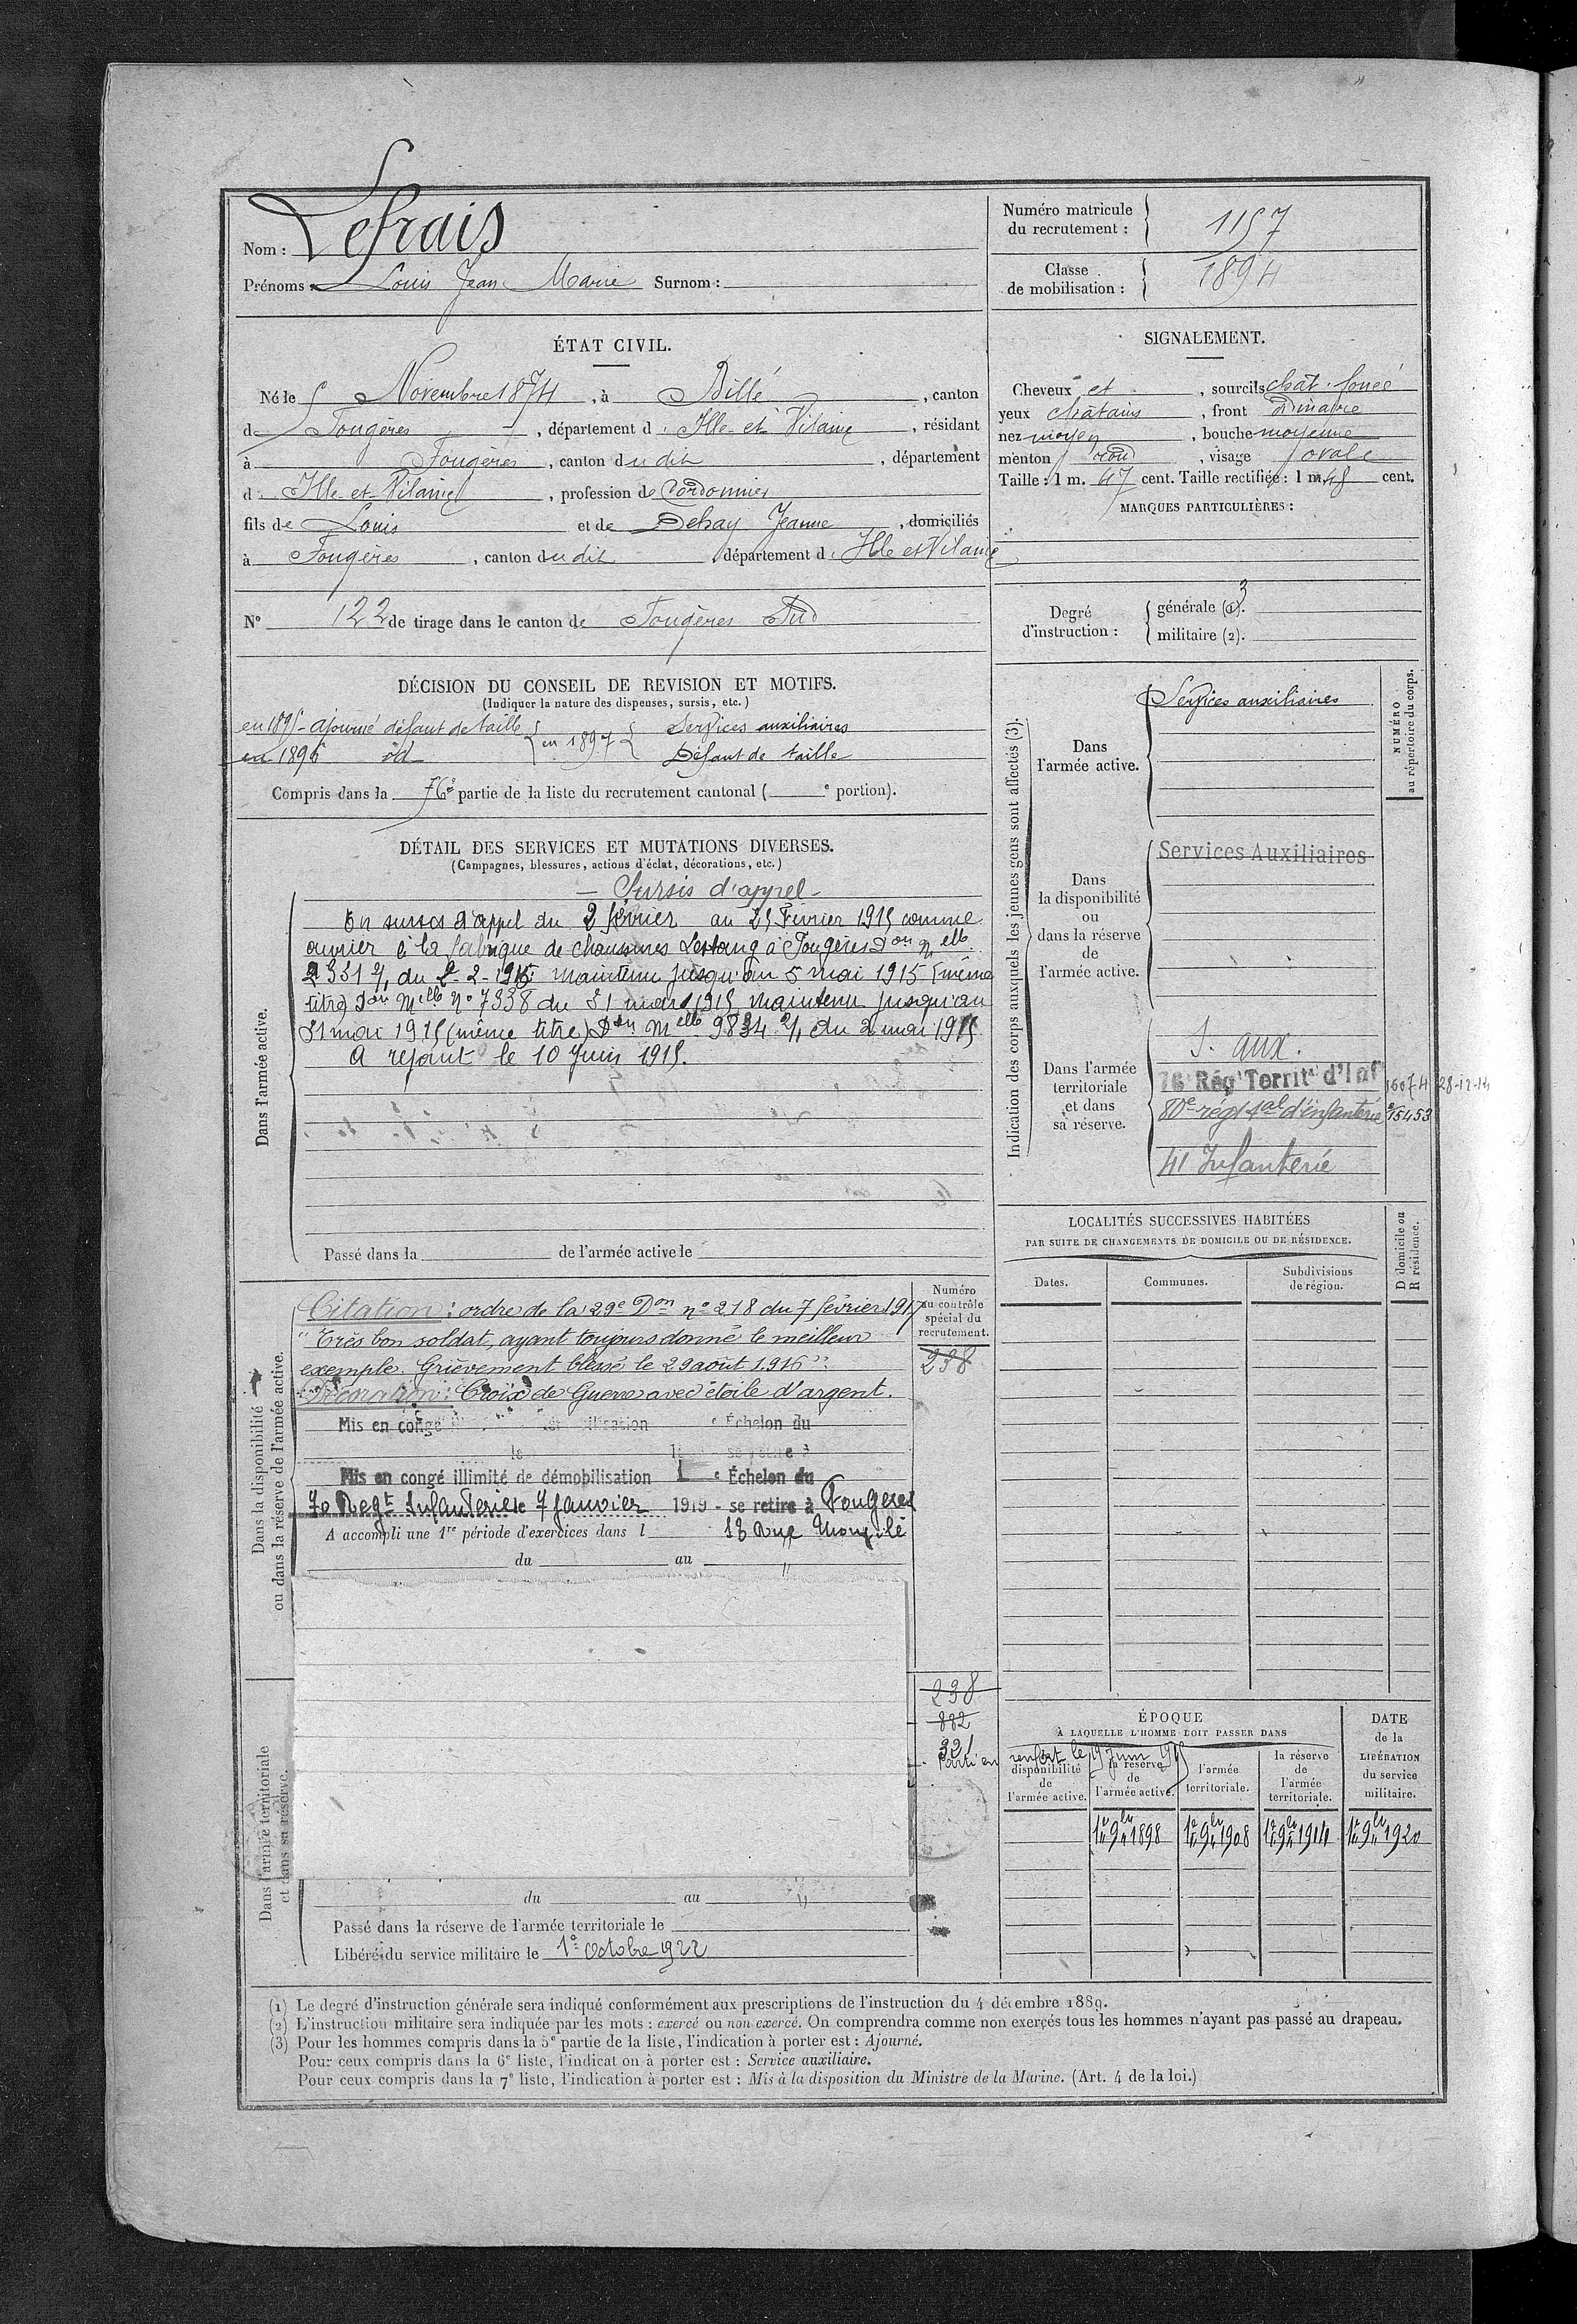 Nom : Lefrais
Prénoms : Louis Jean Marie Surnom :
Numéro matricule du recrutement : 1157
Classe de mobilisation : 1894
ÉTAT CIVIL.
Né le 5 Novembre 1874, à Billé, canton
de Fougères, département d'Ille-et-Vilaine, résidant
à Fougères, canton du dit, département
d'Ille-et-Vilaine, profession de Cordonnier
fils de Louis et de Dehay Jeanne, domiciliés
à Fougères, canton du dit, département d'Ille et Vilaine
N° 122 de tirage dans le canton de Fougères Sud
SIGNALEMENT.
Cheveux et, sourcils chât. foncé
yeux châtains, front ordinaire
nez moyen, bouche moyenne
menton rond, visage ovale
Taille : 1 m. 47 cent. Taille rectifiée : 1 m. 48 cent.
MARQUES PARTICULIÈRES :
Degré d'instruction : générale (1). 3
militaire (2).
DÉCISION DU CONSEIL DE REVISION ET MOTIFS.
(Indiquer la nature des dispenses, sursis, etc.)
en 1895 - ajourné défaut de taille
en 1896 id
en 1897 Services auxiliaires
Défaut de taille
Compris dans la 6e partie de la liste du recrutement cantonal ( e portion).
DÉTAIL DES SERVICES ET MUTATIONS DIVERSES.
(Campagnes, blessures, actions d'éclat, décorations, etc.)
Dans l'armée active.
- Sursis d'appel -
En sursis d'appel du 2 février au 25 Février 1915 comme
ouvrier à la fabrique de chaussures Lestang à Fougères Don Melle
2331 2/1 du 2-2-1915 maintenu jusqu'au 5 mai 1915 (même
titre) Don Melle No 7338 du 31 mars 1915 maintenu jusqu'au
31 mai 1915 (même titre) Don Melle 9834 2/1 du 2 mai 1915
A rejoint le 10 Juin 1915.
Passé dans la de l'armée active le
Indication des corps auxquels les jeunes gens sont affectés (3).
NUMÉRO au répertoire du corps.
Dans l'armée active.
Services auxiliaires
Dans la disponibilité ou dans la réserve de l'armée active.
Services Auxiliaires
Dans l'armée territoriale et dans sa réserve.
S. aux.
76 Régt Territ d'Inf 16074 28-12-14
80e rég tal d'infanterie 15453
41 Infanterie
LOCALITÉS SUCCESSIVES HABITÉES
PAR SUITE DE CHANGEMENTS DE DOMICILE OU DE RÉSIDENCE.
Dates. Communes. Subdivisions de région.
D domicile ou R résidence.
Dans la disponibilité ou dans la réserve de l'armée active.
Numéro au contrôle spécial du recrutement.
238
Citation : ordre de la 29e Don no 218 du 7 février 1917
"Très bon soldat, ayant toujours donné le meilleur
exemple. Grièvement blessé le 29 août 1916".
Décoration : Croix de Guerre avec étoile d'argent.
Mis en congé Échelon du
Mis en congé illimité de démobilisation 1 e Échelon du
70 Regt Infanterie le 7 Janvier 1919 - se retire à Fougères
A accompli une 1re période d'exercices dans l 18 Rue
du au
Dans l'armée territoriale et dans sa réserve.
238
882
321
Parti en renfort le 19 Juin 1915
ÉPOQUE
À LAQUELLE L'HOMME DOIT PASSER DANS
disponibilité de l'armée active.
la réserve de l'armée active.
l'armée territoriale.
la réserve de l'armée territoriale.
DATE de la LIBÉRATION du service militaire.
1er 9bre 1898 1er 9bre 1908 1er 9bre 1914 1er 9bre 1920
du au
Passé dans la réserve de l'armée territoriale le
Libéré du service militaire le 1er Octobre 1922
(1) Le degré d'instruction générale sera indiqué conformément aux prescriptions de l'instruction du 4 décembre 1889.
(2) L'instruction militaire sera indiquée par les mots : exercé ou non exercé. On comprendra comme non exercés tous les hommes n'ayant pas passé au drapeau.
(3) Pour les hommes compris dans la 5e partie de la liste, l'indication à porter est : Ajourné.
Pour ceux compris dans la 6e liste, l'indication à porter est : Service auxiliaire.
Pour ceux compris dans la 7e liste, l'indication à porter est : Mis à la disposition du Ministre de la Marine. (Art. 4 de la loi.)